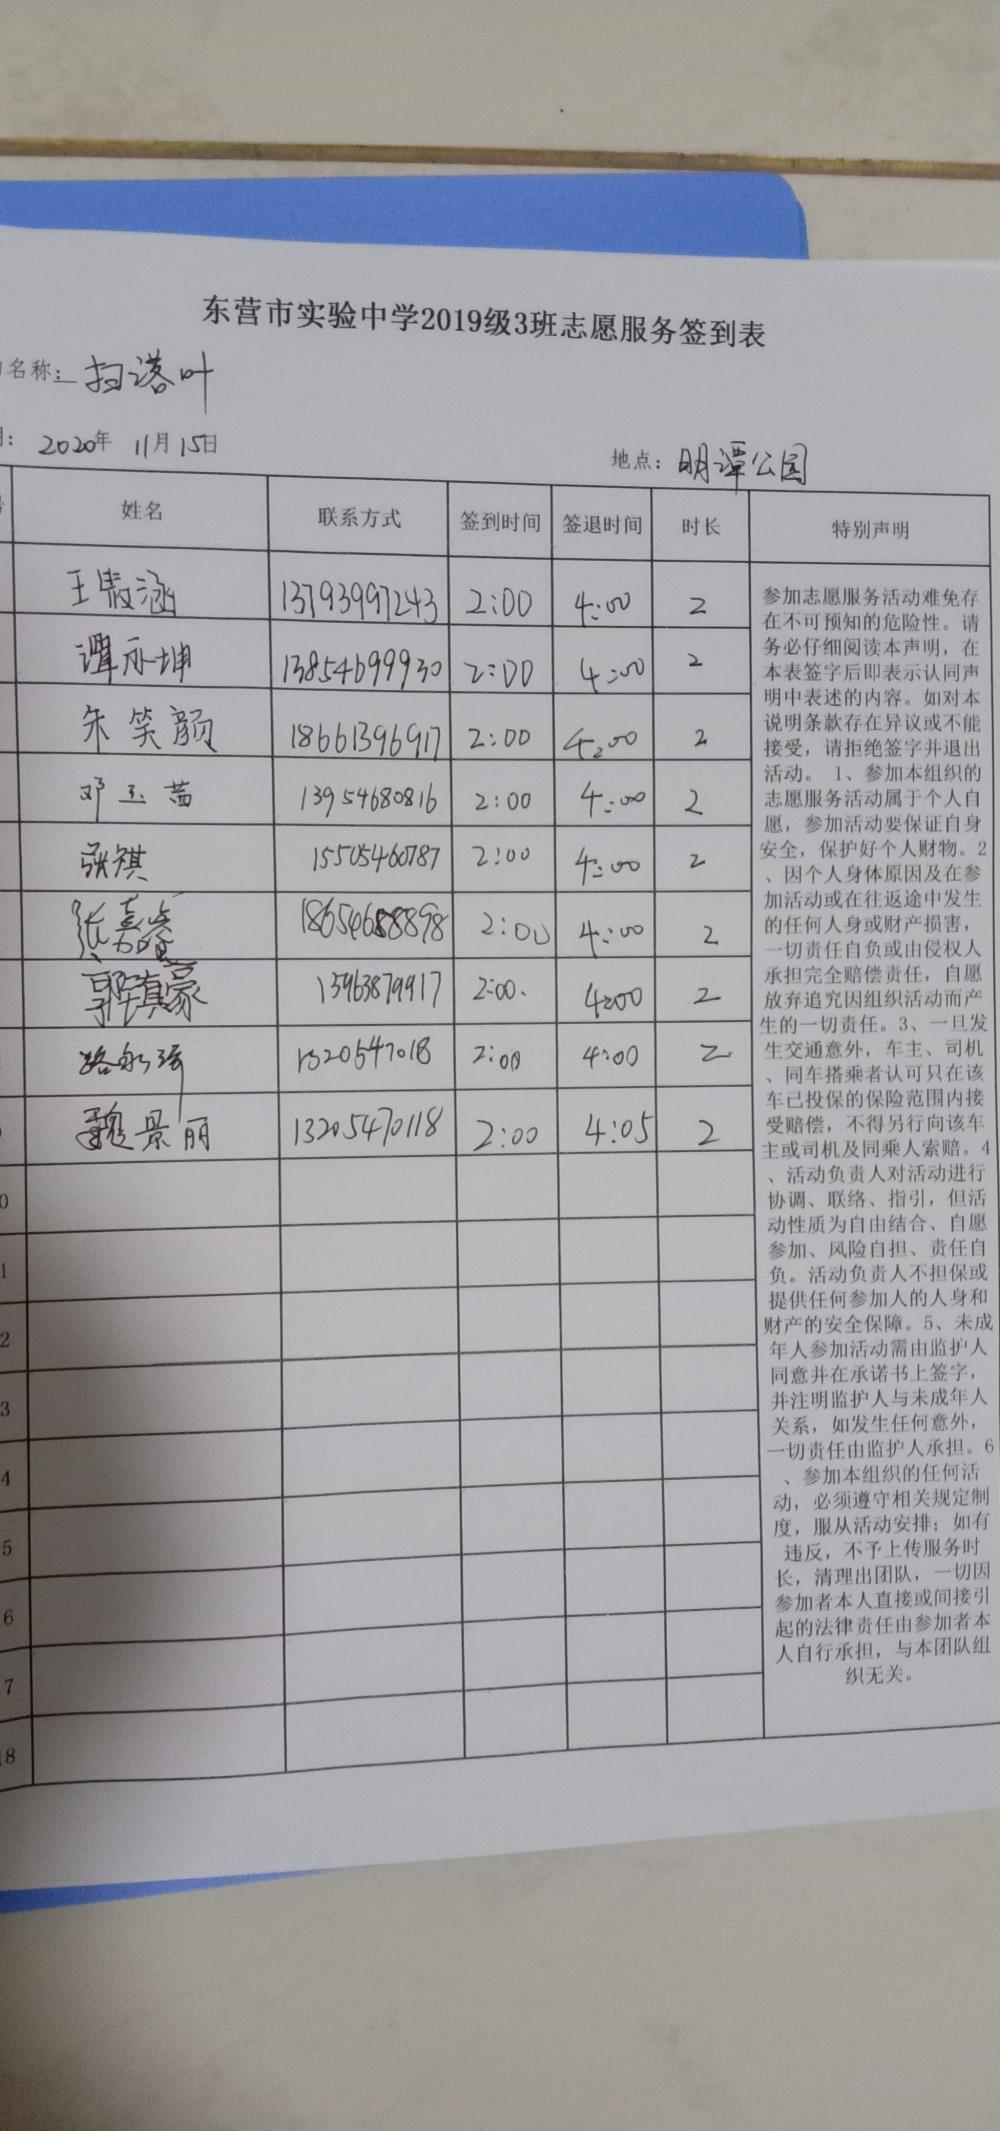 东营市实验中学2019级3班志愿服务签到表
名称： 扫落叶
2020年 11月15日 地点： 明潭公园
姓名 联系方式 签到时间 签退时间 时长 特别声明
王 涵 13793997243 2:00 4:00 2
谭永坤 13854699930 2:00 4:00 2
朱笑颜 18661396917 2:00 4:00 2
邓玉茜 13954680816 2:00 4:00 2
张祺 15505460787 2:00 4:00 2
张嘉睿 18654688898 2:00 4:00 2
郭 豪 13963879917 2:00. 4:00 2
路永 2:00 4:00 2
魏景丽 13205470118 2:00 4:05 2
0
1
2
3
4
5
6
7
18
参加志愿服务活动难免存
在不可预知的危险性。请
务必仔细阅读本声明，在
本表签字后即表示认同声
明中表述的内容。如对本
说明条款存在异议或不能
接受，请拒绝签字并退出
活动。 1、参加本组织的
志愿服务活动属于个人自
愿，参加活动要保证自身
安全，保护好个人财物。2
、因个人身体原因及在参
加活动或在往返途中发生
的任何人身或财产损害，
一切责任自负或由侵权人
承担完全赔偿责任，自愿
放弃追究因组织活动而产
生的一切责任。3、一旦发
生交通意外，车主、司机
、同车搭乘者认可只在该
车已投保的保险范围内接
受赔偿，不得另行向该车
主或司机及同乘人索赔。4
、活动负责人对活动进行
协调、联络、指引，但活
动性质为自由结合、自愿
参加、风险自担、责任自
负。活动负责人不担保或
提供任何参加人的人身和
财产的安全保障。5、未成
年人参加活动需由监护人
同意并在承诺书上签字，
并注明监护人与未成年人
关系，如发生任何意外，
一切责任由监护人承担。6
、参加本组织的任何活
动，必须遵守相关规定制
度，服从活动安排；如有
违反，不予上传服务时
长，清理出团队，一切因
参加者本人直接或间接引
起的法律责任由参加者本
人自行承担，与本团队组
织无关。